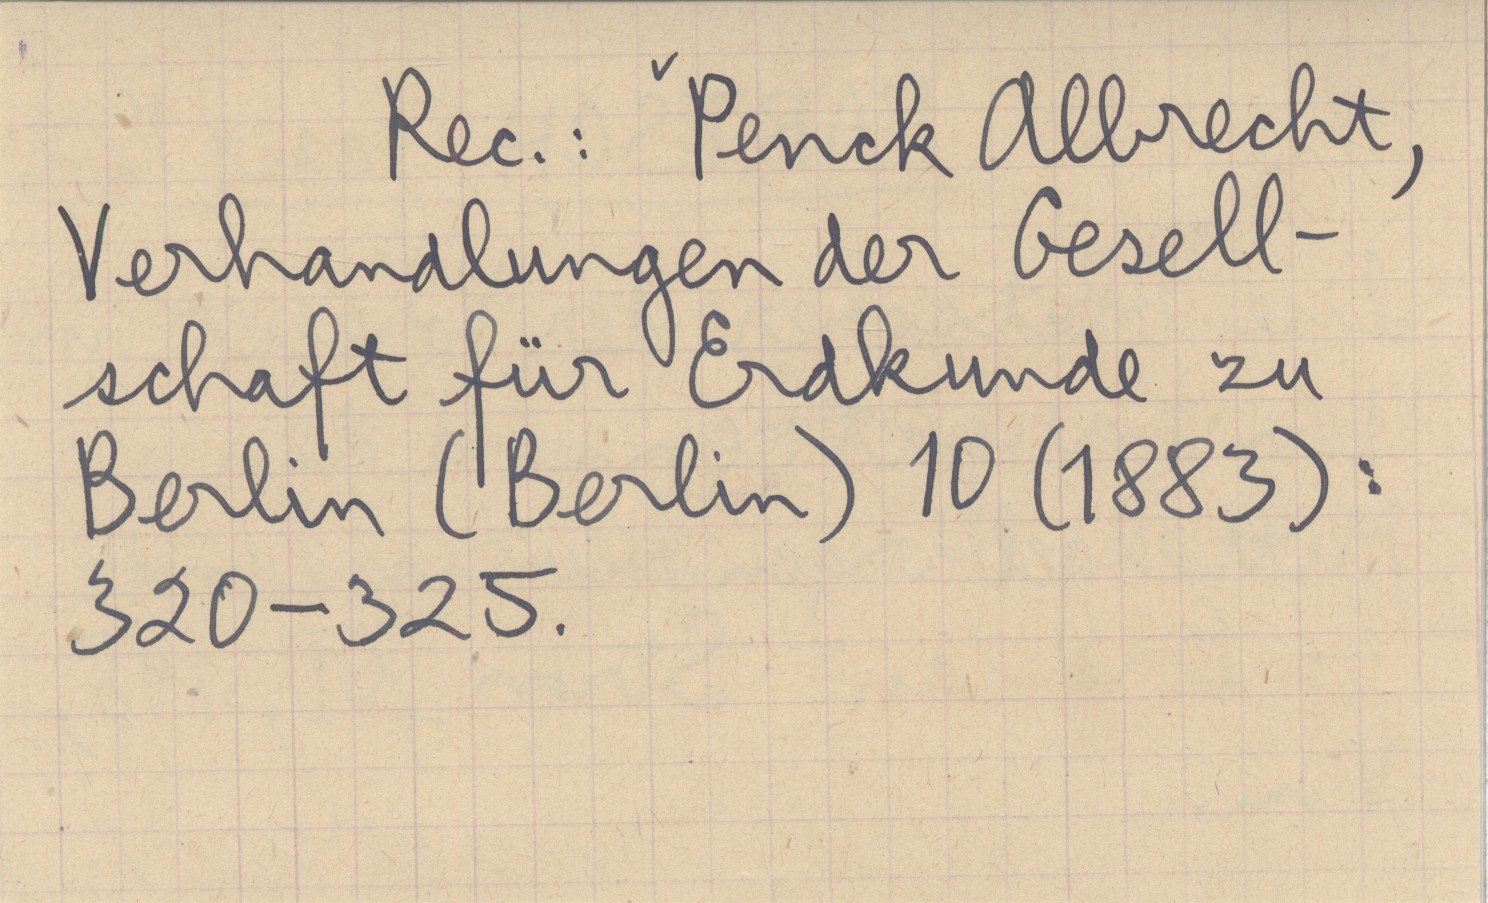 Rec.: ˇPenck Albrecht,
Verhandlungen der Gesell-
schaft für Erdkunde zu
Berlin (Berlin) 10 (1883):
320-325.